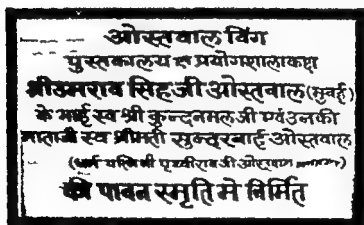 ओस्तवाल विंग
पुस्तकालय एवं प्रयोगशालाकक्ष
श्रीउमराव सिंहजी ओस्तवाल (मुंबई)
के भाई स्व श्री कुन्दनमलजी एवंउनकी
माताजी स्व श्रीमती सुन्दरबाई ओस्तवाल
(धर्म पत्नि श्री पृथ्वीराज जी ओस्तवाल
की पावन स्मृति मे निर्मित